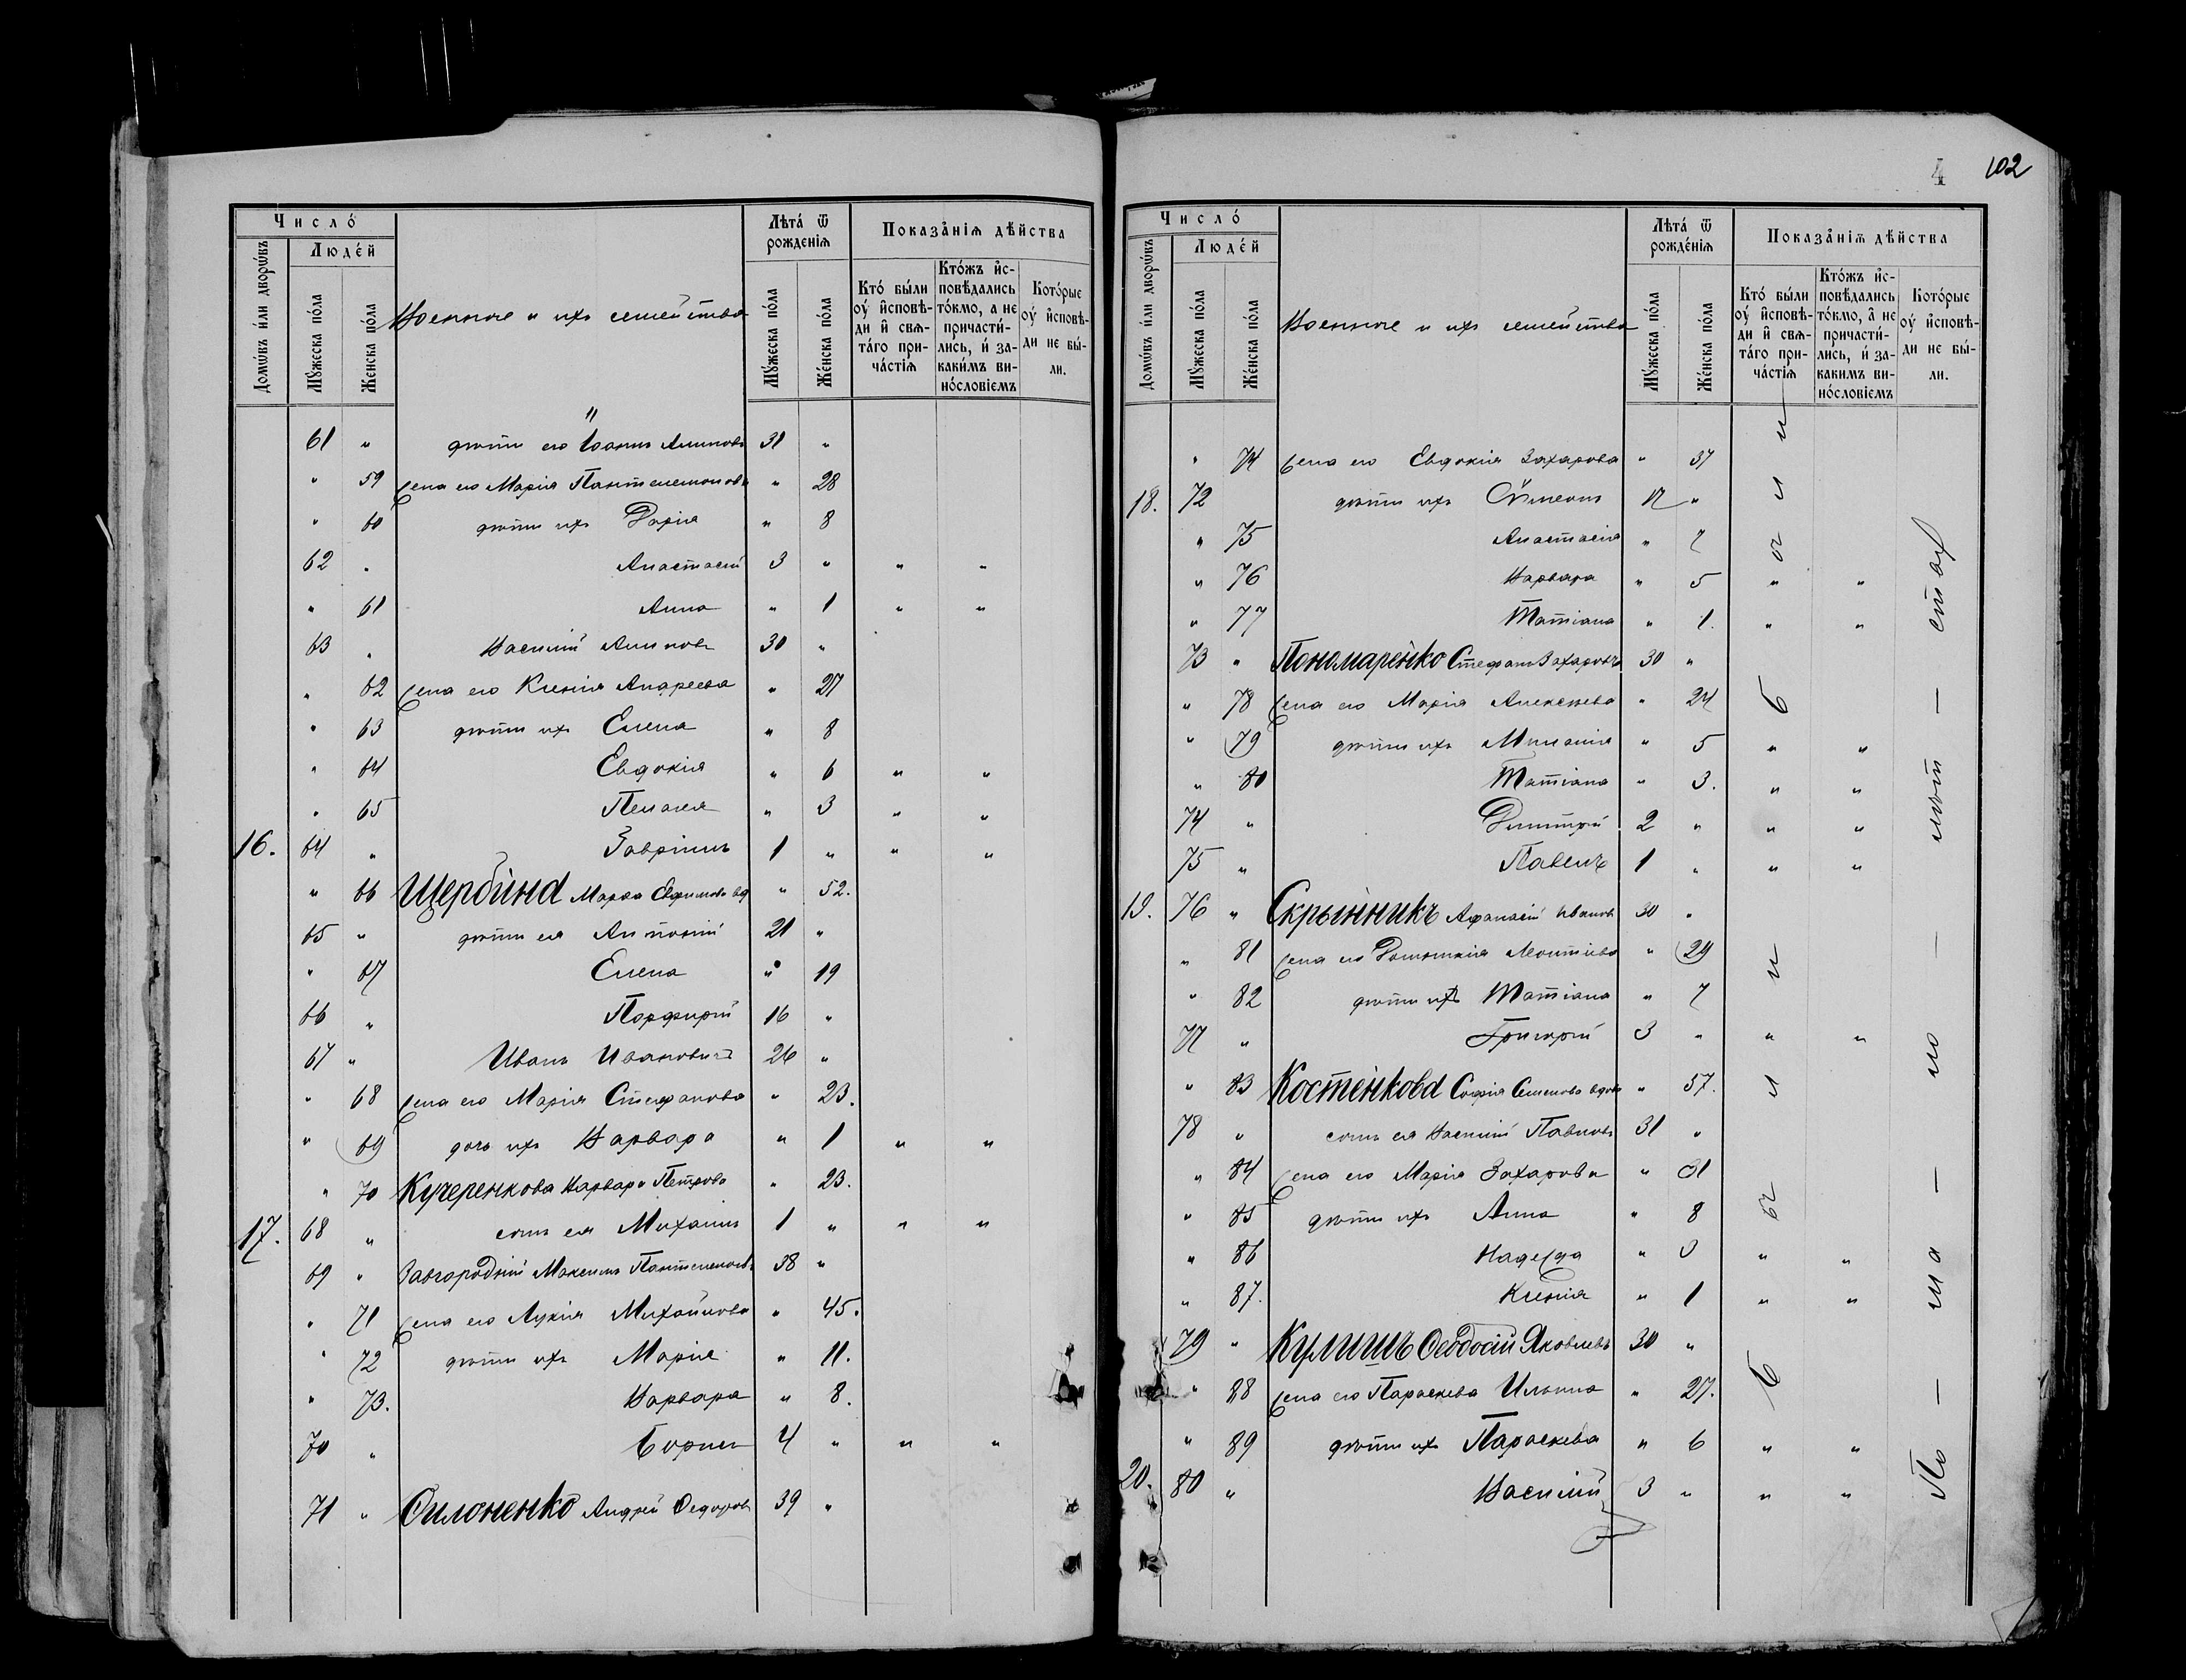 Число́
Домѡ́въ и́ли дворѡ́въ
Люде́й
Мꙋ́жеска по́ла
Же́нска по́ла
Военные и ихъ семейства
Лѣта́ ѿ рожде́нїѧ
Мꙋ́жеска по́ла
Же́нска по́ла
Показа̑нїѧ дѣ́йства
Кто́ бы́ли оу҆ и҆сповѣ-
ди и҆ свѧ-
та́го при-
ча́стїѧ
Кто́жъ и҆с-
повѣ́дались
то́кмо, а не
причасти́-
лись, и҆ за-
каки́мъ ви-
носло́вїемъ
Кото́рые
оу҆ и҆сповѣ́-
ди не бы́-
ли.
"
61 " дѣти его Іоаннъ 31 "
" 59 жена его Марія Пантелемонова " 28
" 60 дѣти ихъ Дарія " 8
62 " Анастасій 3 " " "
" 61 Анна " 1 " "
63 " Василій 30 "
" 62 жена его Ксенія Андреева " 27
" 63 дѣти ихъ Елена " 8
" 64 Евдокія " 6 " "
" 65 Пелагея " 3 " "
16. 64 " Гавріилъ 1 " " "
" 66 Щербина Марѳа Евфимова вд " 52.
65 " дѣти ея Антоній 21 "
" 67 Елена " 19
66 " Порфирій 16 "
67 " Иванъ Ивановичъ 26 "
" 68 жена его Марія Стефанова " 23.
" 69 дочь ихъ Варвара " 1 " "
" 70 Кучеренкова Варвара Петрова " 23.
17. 68 " сынъ ея Михаилъ 1 " " "
69 " Завгородній Максимъ Пантелемонъ 38 "
" 71 жена его Лукія Михайлова " 45.
" 72 дѣти ихъ Марія " 11.
" 73. Варвара " 8.
70 " Борисъ 4 " " "
71 " Филоненко Андрей Федоровъ 39 "
4 102
Число́
Домѡ́въ и́ли дворѡ́въ
Люде́й
Мꙋ́жеска по́ла
Же́нска по́ла
Военные и ихъ семейства
Лѣта́ ѿ рожде́нїѧ
Мꙋ́жеска по́ла
Же́нска по́ла
Показа̑нїѧ дѣ́йства
Кто́ бы́ли
оу҆ и҆сповѣ́-
ди и҆ свѧ-
та́го при-
ча́стїѧ
Кто́жъ и҆с-
повѣ́дались
то́кмо, а҆ не
причасти́-
лись, и҆ за-
каки́мъ ви-
носло́вїемъ
Кото́рые
оу҆ и҆сповѣ́-
ди не бы́-
ли.
" 74 жена его Евдокія Захарова " 37
18. 72 дѣти ихъ Сѵмеонъ 12 "
" 75 Анастасія " 7
" 76 Варвара " 5 " "
" 77 Татіана " 1. " "
73 " Пономаренко Стефанъ Захаровъ 30 "
" 78 жена его Марія Алексѣева " 24
" 79 дѣти ихъ Миланія " 5 " "
" 80 Татіана " 3. " "
74 " Димитрій 2 " " "
75 " Павелъ 1 " " "
19. 76 " Скрынникъ Афанасій Ивановъ 30 "
" 81 жена его Домникія Леонтіева " 29
" 82 дѣти ихъ Татіана " 7
77 " Григорій 3 " " "
" 83 Костенкова Софія Семенова вдова " 57.
78 " сынъ ея Василій Павловъ 31 "
" 84 жена его Марія Захарова " 31
" 85 дѣти ихъ Анна " 8
" 86 Надежда " 3 " "
" 87. Ксенія " 1 " "
79 " Кулишъ Феодосій Яковлевъ 30 "
" 88 жена его Параскева Ильина " 27.
" 89 дѣти ихъ Параскева " 6 " "
20. 80 " Василій 3 " " "
были
были
По — ма — ло — лѣт — ств